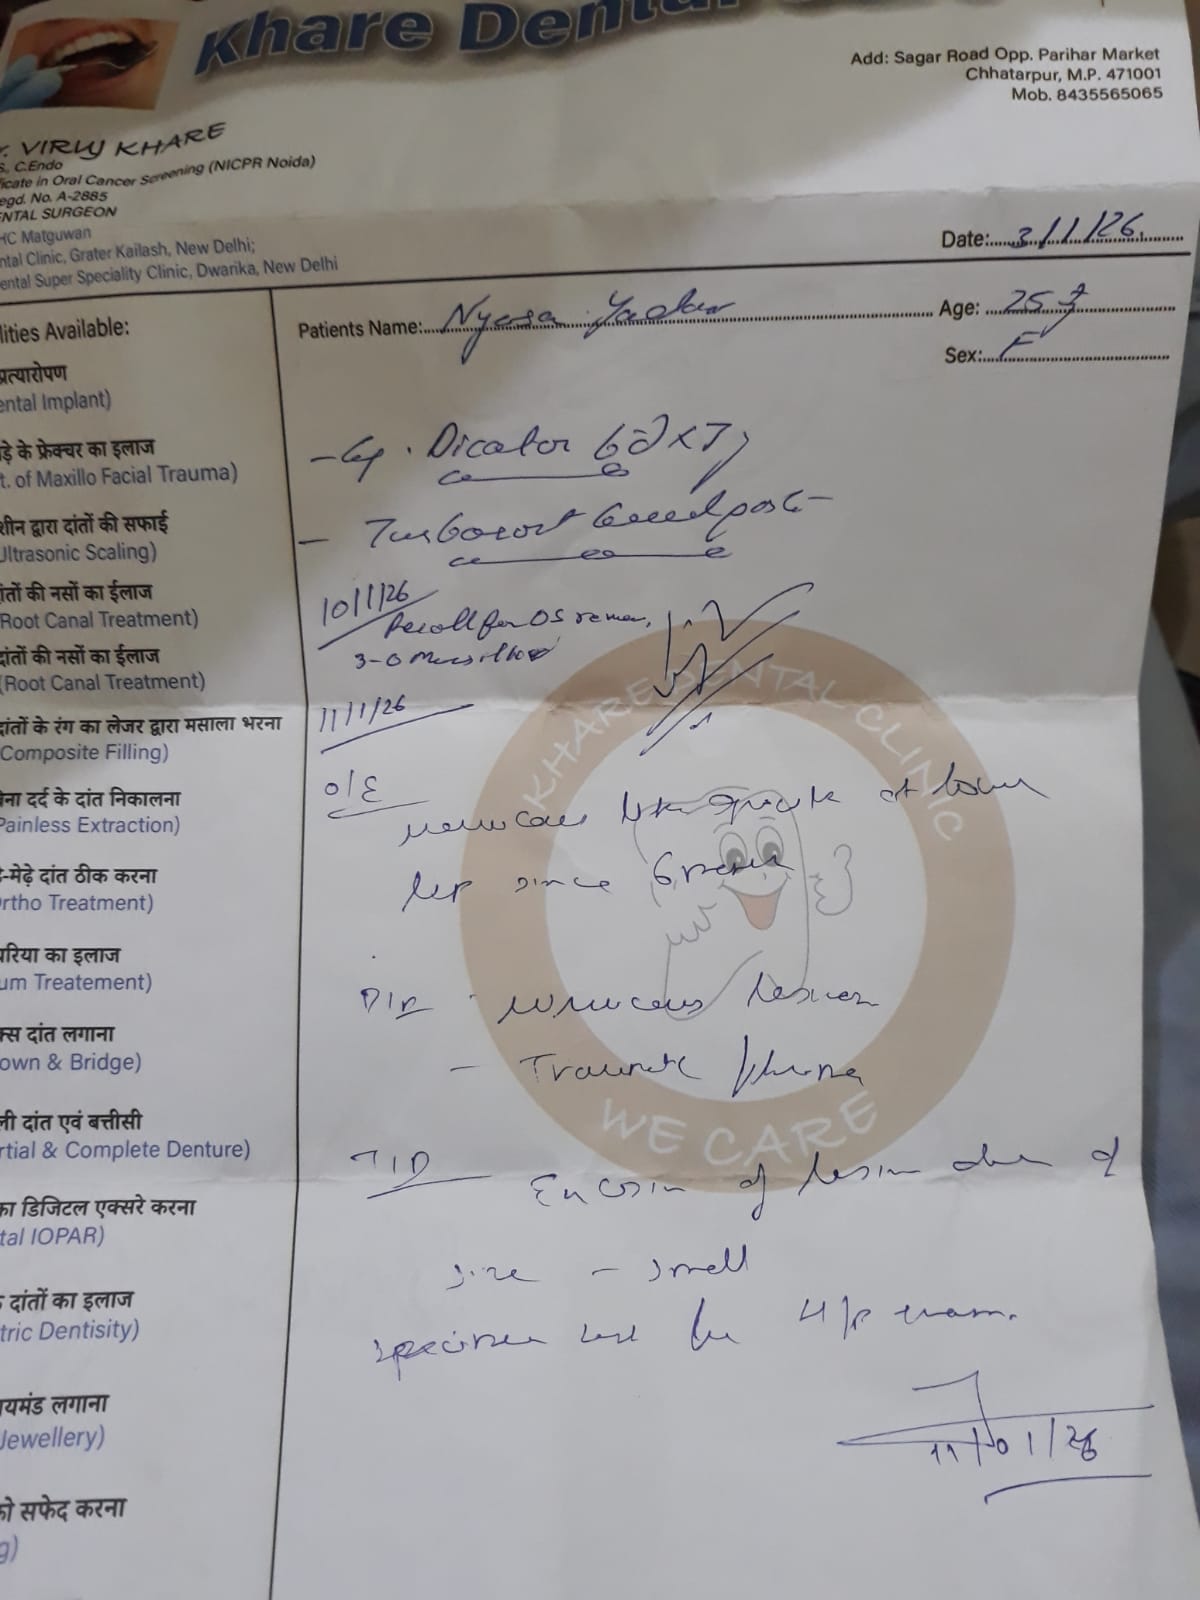 Khare Dental
Add: Sagar Road Opp. Parihar Market
Chhatarpur, M.P. 471001
Mob. 8435565065
r. VIRUJ KHARE
S., C.Endo
ficate in Oral Cancer Screening (NICPR Noida)
egd. No. A-2885
ENTAL SURGEON
HC Matguwan
ntal Clinic, Grater Kailash, New Delhi;
ental Super Speciality Clinic, Dwarika, New Delhi
Date: 3/1/26
lities Available:
Patients Name: Nyasa Yadav
Age: 25 y
Sex: F
प्रत्यारोपण
ental Implant)
ड़े के फ्रेक्चर का इलाज
t. of Maxillo Facial Trauma)
शीन द्वारा दांतों की सफाई
Ultrasonic Scaling)
दांतों की नसों का ईलाज
(Root Canal Treatment)
दांतों की नसों का ईलाज
(Root Canal Treatment)
दांतों के रंग का लेजर द्वारा मसाला भरना
(Composite Filling)
बेना दर्द के दांत निकालना
Painless Extraction)
ढ़े-मेढ़े दांत ठीक करना
Ortho Treatment)
यरिया का इलाज
um Treatement)
क्स दांत लगाना
own & Bridge)
ली दांत एवं बत्तीसी
rtial & Complete Denture)
का डिजिटल एक्सरे करना
tal IOPAR)
के दांतों का इलाज
tric Dentisity)
ायमंड लगाना
Jewellery)
को सफेद करना
g)
- Dicator
-
10/1/26
Recall for
3-0
11/1/26
O/E
like at lower
lip since 6
D/D - lesion
- Traumatic fibroma
T/D
of lesion done of
size - small
specimen sent for H/P exam.
11/01/26
KHARE DENTAL CLINIC
WE CARE